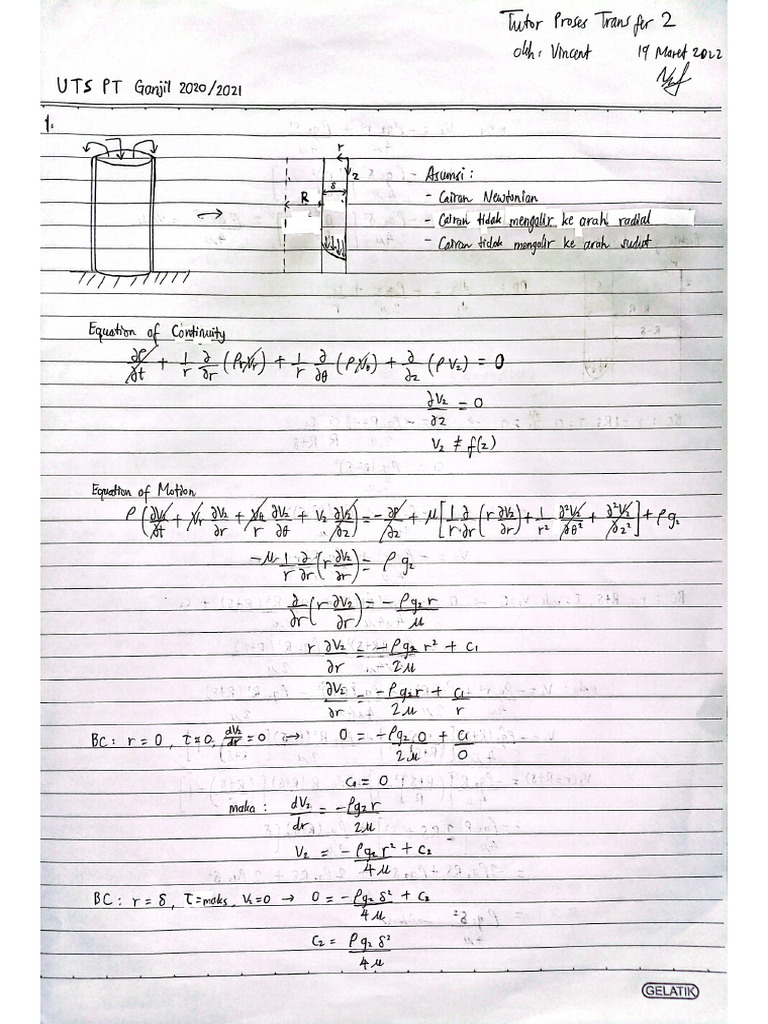 Tutor Proses Transfer 2
oleh: Vincent 19 Maret 2022
UTS PT Ganjil 2020/2021
1.
r
z
δ
R
Asumsi:
- Cairan Newtonian
- Cairan tidak mengalir ke arah radial
- Cairan tidak mengalir ke arah sudut
Equation of Continuity
∂ρ/∂t + 1/r ∂/∂r (ρrVr) + 1/r ∂/∂θ (ρVθ) + ∂/∂z (ρVz) = 0
∂Vz/∂z = 0
Vz ≠ f(z)
Equation of Motion
ρ(∂Vz/∂t + Vr ∂Vz/∂r + Vθ/r ∂Vz/∂θ + Vz ∂Vz/∂z) = -∂P/∂z + μ[1/r ∂/∂r (r ∂Vz/∂r) + 1/r² ∂²Vz/∂θ² + ∂²Vz/∂z²] + ρgz
-μ 1/r ∂/∂r (r ∂Vz/∂r) = ρgz
∂/∂r (r ∂Vz/∂r) = -ρgz r/μ
r ∂Vz/∂r = -ρgz r²/2μ + C1
∂Vz/∂r = -ρgz r/2μ + C1/r
BC: r = 0, τ = 0, dVz/dr = 0 → 0 = -ρgz 0/2μ + C1/0
C1 = 0
maka: dVz/dr = -ρgz r/2μ
Vz = -ρgz r²/4μ + C2
BC: r = δ, τ = maks, Vz = 0 → 0 = -ρgz δ²/4μ + C2
C2 = ρgz δ²/4μ
GELATIK